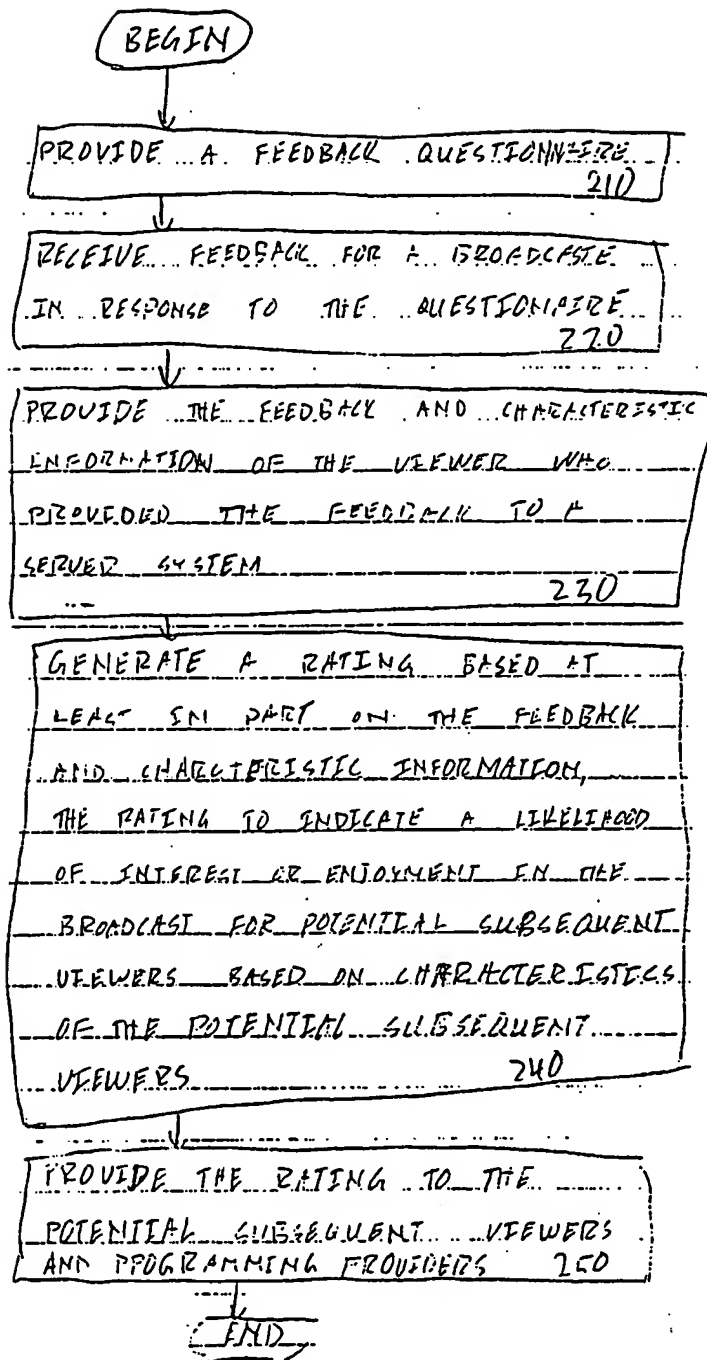 BEGIN
PROVIDE A FEEDBACK QUESTIONNAIRE
210
RECEIVE FEEDBACK FOR A BROADCASTE
IN RESPONSE TO THE QUESTIONAIRE
220
PROVIDE THE FEEDBACK AND CHARACTERISTIC
INFORMATION OF THE VIEWER WHO
PROVIDED THE FEEDBACK TO A
SERVER SYSTEM
230
GENERATE A RATING BASED AT
LEAST IN PART ON THE FEEDBACK
AND CHARACTERISTIC INFORMATION,
THE RATING TO INDICATE A LIKELIHOOD
OF INTEREST OR ENJOYMENT IN THE
BROADCAST FOR POTENTIAL SUBSEQUENT
VIEWERS BASED ON CHARACTERISTICS
OF THE POTENTIAL SUBSEQUENT
VIEWERS 240
PROVIDE THE RATING TO THE
POTENTIAL SUBSEQUENT VIEWERS
AND PROGRAMMING PROVIDERS 250
END